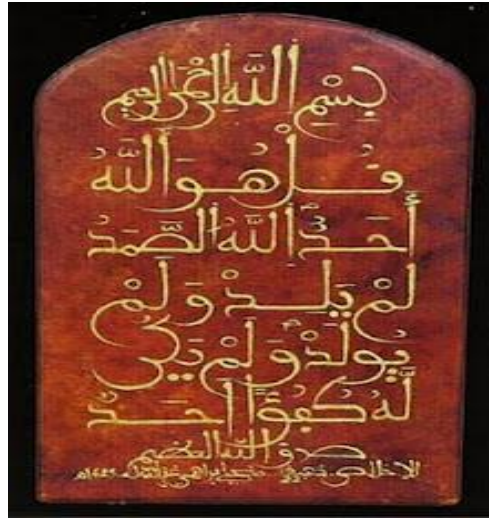 بِسْمِ اللَّهِ الرَّحْمَٰنِ الرَّحِيمِ
قُلْ هُوَ اللَّهُ
أَحَدٌ اللَّهُ الصَّمَدُ
لَمْ يَلِدْ وَلَمْ
يُولَدْ وَلَمْ يَكُن
لَّهُ كُفُؤًا أَحَدٌ
صدق الله العظيم
الإخلاص